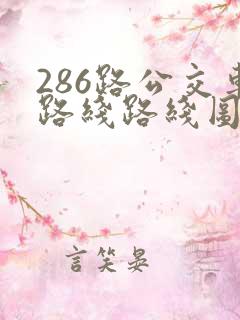 286路公交车
路线路线图
言笑晏